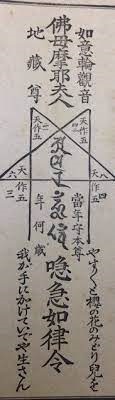 如意輪觀音
佛母摩耶夫人
地藏尊
天作五
天作五
二
一
天作五
八
四
天作五
六
三
當年守本尊
年何歳
唵急如律令
やす〱と櫻の花のみどり兒を
我が手にかけていでや生さん